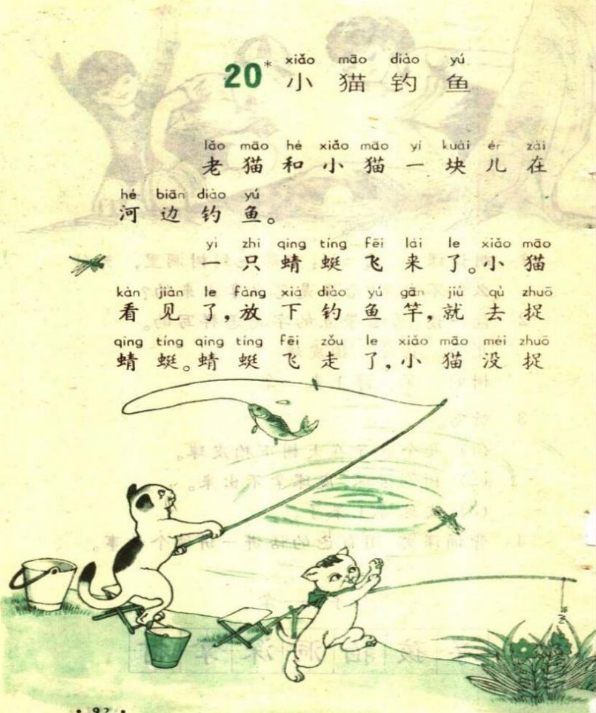 xiǎo māo diào yú
20* 小猫钓鱼
lǎo māo hé xiǎo māo yí kuài ér zài
老猫和小猫一块儿在
hé biān diào yú
河边钓鱼。
yì zhī qīng tíng fēi lái le xiǎo māo
一只蜻蜓飞来了。小猫
kàn jiàn le fàng xià diào yú gān jiù qù zhuō
看见了,放下钓鱼竿,就去捉
qīng tíng qīng tíng fēi zǒu le xiǎo māo méi zhuō
蜻蜓。蜻蜓飞走了,小猫没捉